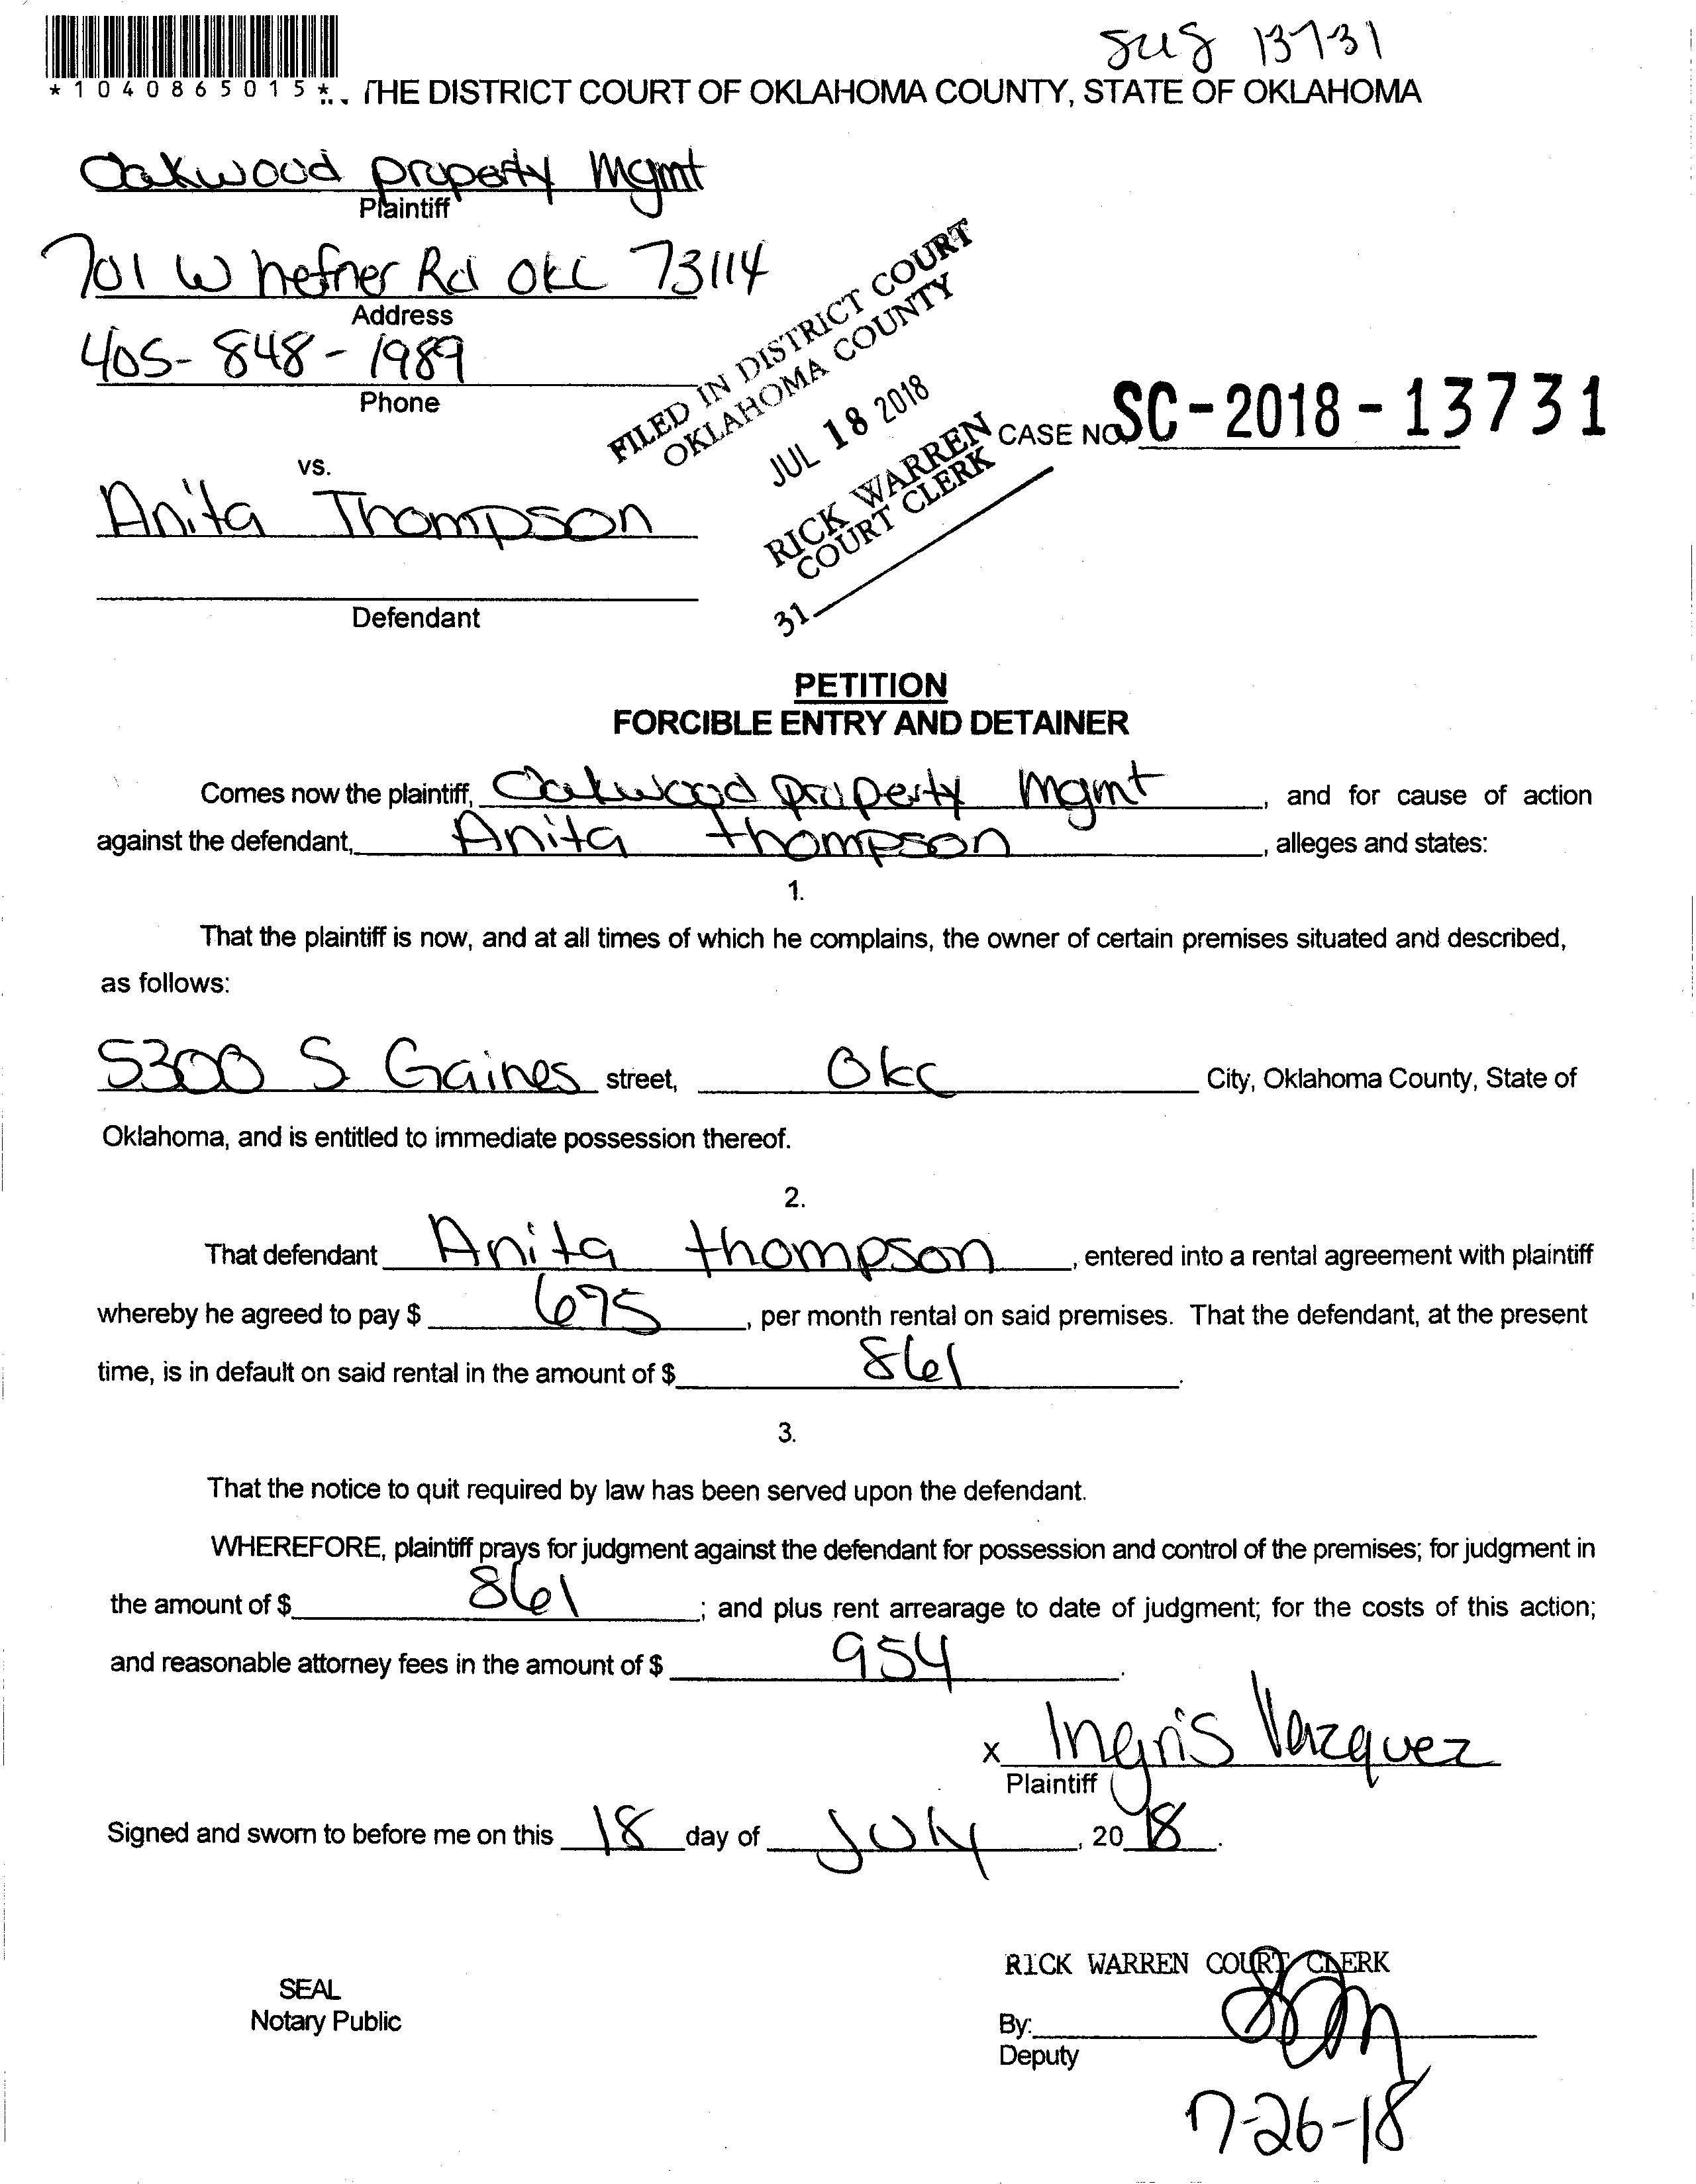 13731
*1040865015*
THE DISTRICT COURT OF OKLAHOMA COUNTY, STATE OF OKLAHOMA
Oakwood property Mgmt
Plaintiff
701 W hefner Rd OKC 73114
Address
405-848-1989
Phone
FILED IN DISTRICT COURT
OKLAHOMA COUNTY
JUL 18 2018
RICK WARREN
COURT CLERK
31
CASE NO. SC-2018-13731
vs.
Anita Thompson
Defendant
PETITION
FORCIBLE ENTRY AND DETAINER
Comes now the plaintiff, Oakwood property Mgmt, and for cause of action
against the defendant, Anita thompson, alleges and states:
1.
That the plaintiff is now, and at all times of which he complains, the owner of certain premises situated and described,
as follows:
5300 S Gaines street, Okc City, Oklahoma County, State of
Oklahoma, and is entitled to immediate possession thereof.
2.
That defendant Anita thompson, entered into a rental agreement with plaintiff
whereby he agreed to pay $ 695, per month rental on said premises. That the defendant, at the present
time, is in default on said rental in the amount of $ 861.
3.
That the notice to quit required by law has been served upon the defendant.
WHEREFORE, plaintiff prays for judgment against the defendant for possession and control of the premises; for judgment in
the amount of $ 861; and plus rent arrearage to date of judgment; for the costs of this action;
and reasonable attorney fees in the amount of $ 954.
x Ingris Vazquez
Plaintiff
Signed and sworn to before me on this 18 day of July, 2018.
RICK WARREN COURT CLERK
SEAL
Notary Public
By:
Deputy
7-26-18